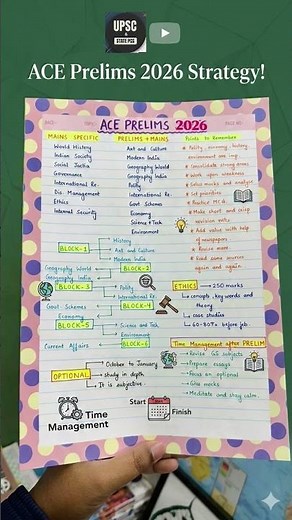 UPSC
&
STATE PCS
ACE Prelims 2026 Strategy!
ACE PRELIMS 2026
MAINS SPECIFIC
World History
Indian Society
Social Justice
Governance
International Re.
Dis. Management
Ethics
Internal Security
PRELIMS + MAINS
Art and Culture
Modern India
Geography World
Geography India
Polity
International Re.
Govt Schemes
Economy
Science & Tech
Environment
Points to Remember
Polity, economy, history
environment are imp.
Consolidate strong areas
Work upon weakness
Collect marks and analyse
Set guidelines
Practice MCQ
Make short and crisp
revision notes
Add value with help
of newspapers
Revise more
Read same sources
again and again
BLOCK-1
History
Art and Culture
Modern India
Geography World
Geography India
BLOCK-2
BLOCK-3
Polity
International Re.
Govt Schemes
Economy
BLOCK-4
BLOCK-5
Science and Tech
Environment
Current Affairs
BLOCK-6
ETHICS
250 marks
concepts, key words and
theory
case studies
60-80% before feb
OPTIONAL
October to January
study in depth
It is subjective.
Time Management after PRELIM
Revise GS subjects
Prepare essays
Focus on optional
Give mocks
Meditate and stay calm.
Time
Management
Start
Finish